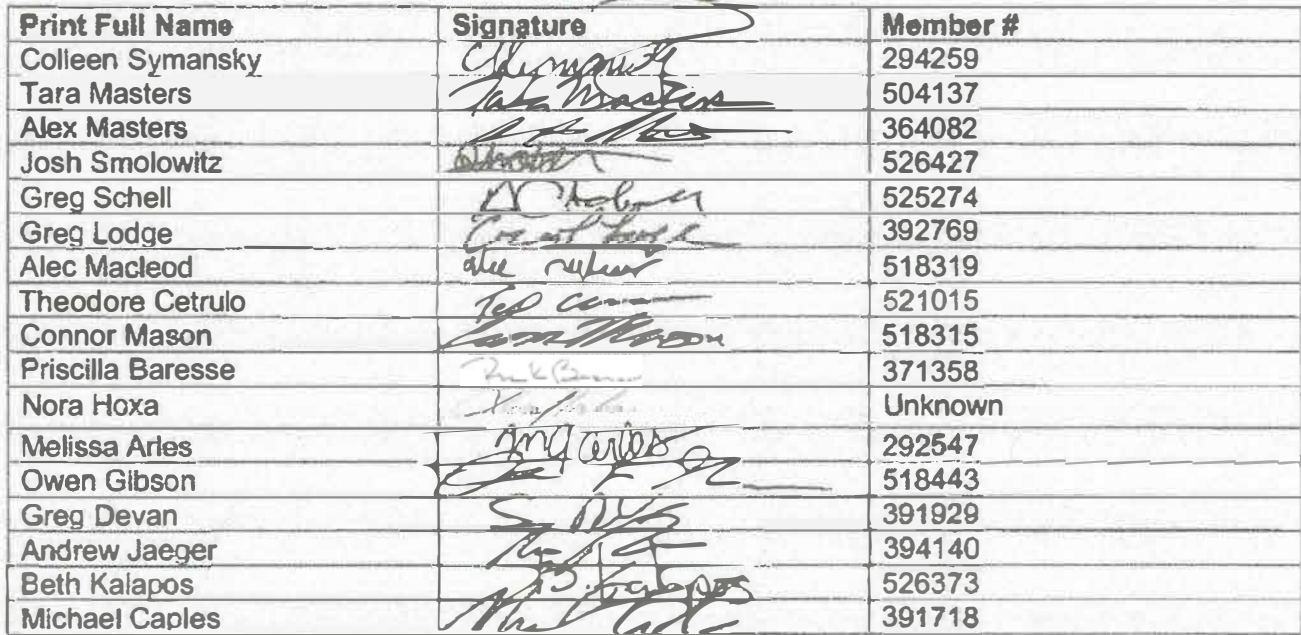 Print Full Name Signature Member #
Colleen Symansky 294259
Tara Masters Tara Masters 504137
Alex Masters 364082
Josh Smolowitz 526427
Greg Schell 525274
Greg Lodge 392769
Alec Macleod 518319
Theodore Cetrulo Ted 521015
Connor Mason Connor Mason 518315
Priscilla Baresse 371358
Nora Hoxa Unknown
Melissa Arles 292547
Owen Gibson 518443
Greg Devan 391929
Andrew Jaeger 394140
Beth Kalapos B. Kalapos 526373
Michael Caples 391718